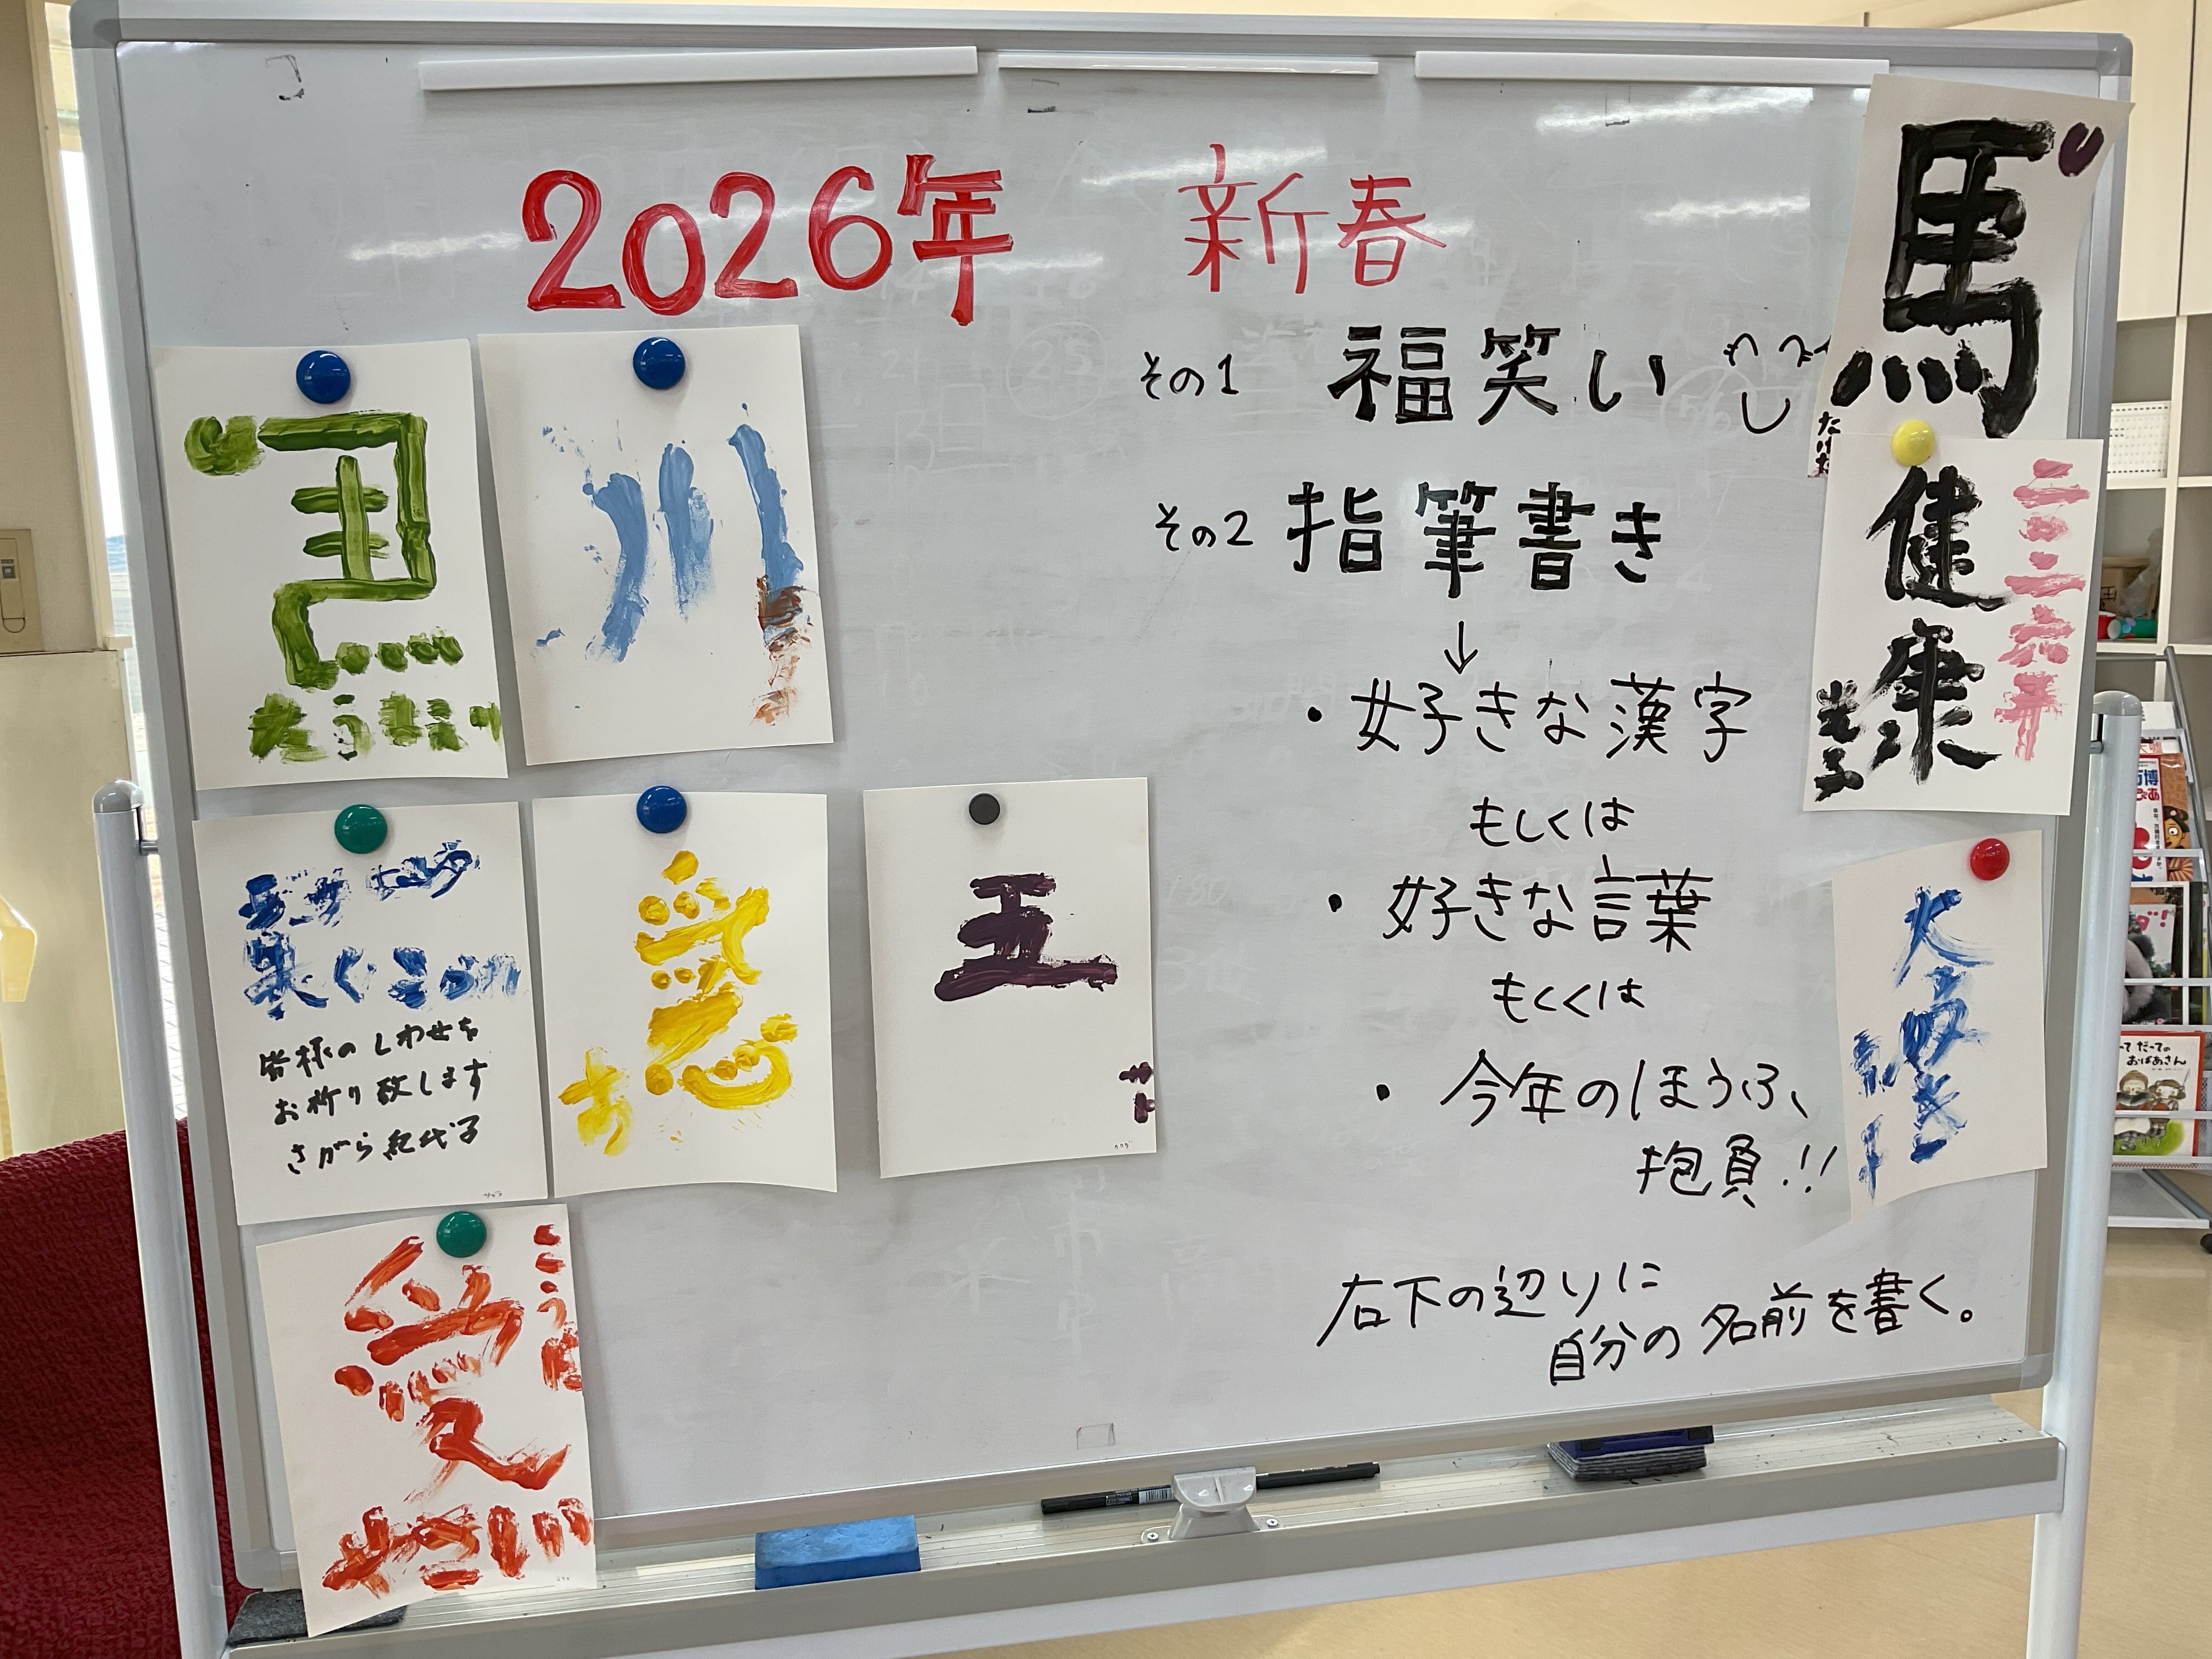 2026年 新春
その1 福笑い
その2 指筆書き
↓
・好きな漢字
もしくは
・好きな言葉
もしくは
・今年のほうふ、
抱負!!
右下の辺りに
自分の名前を書く。
馬
健康
二〇二六年
川
皆様のしわせを
お祈り致します
さがら紀代子
王
愛
やさしい
だっての
おばあさん